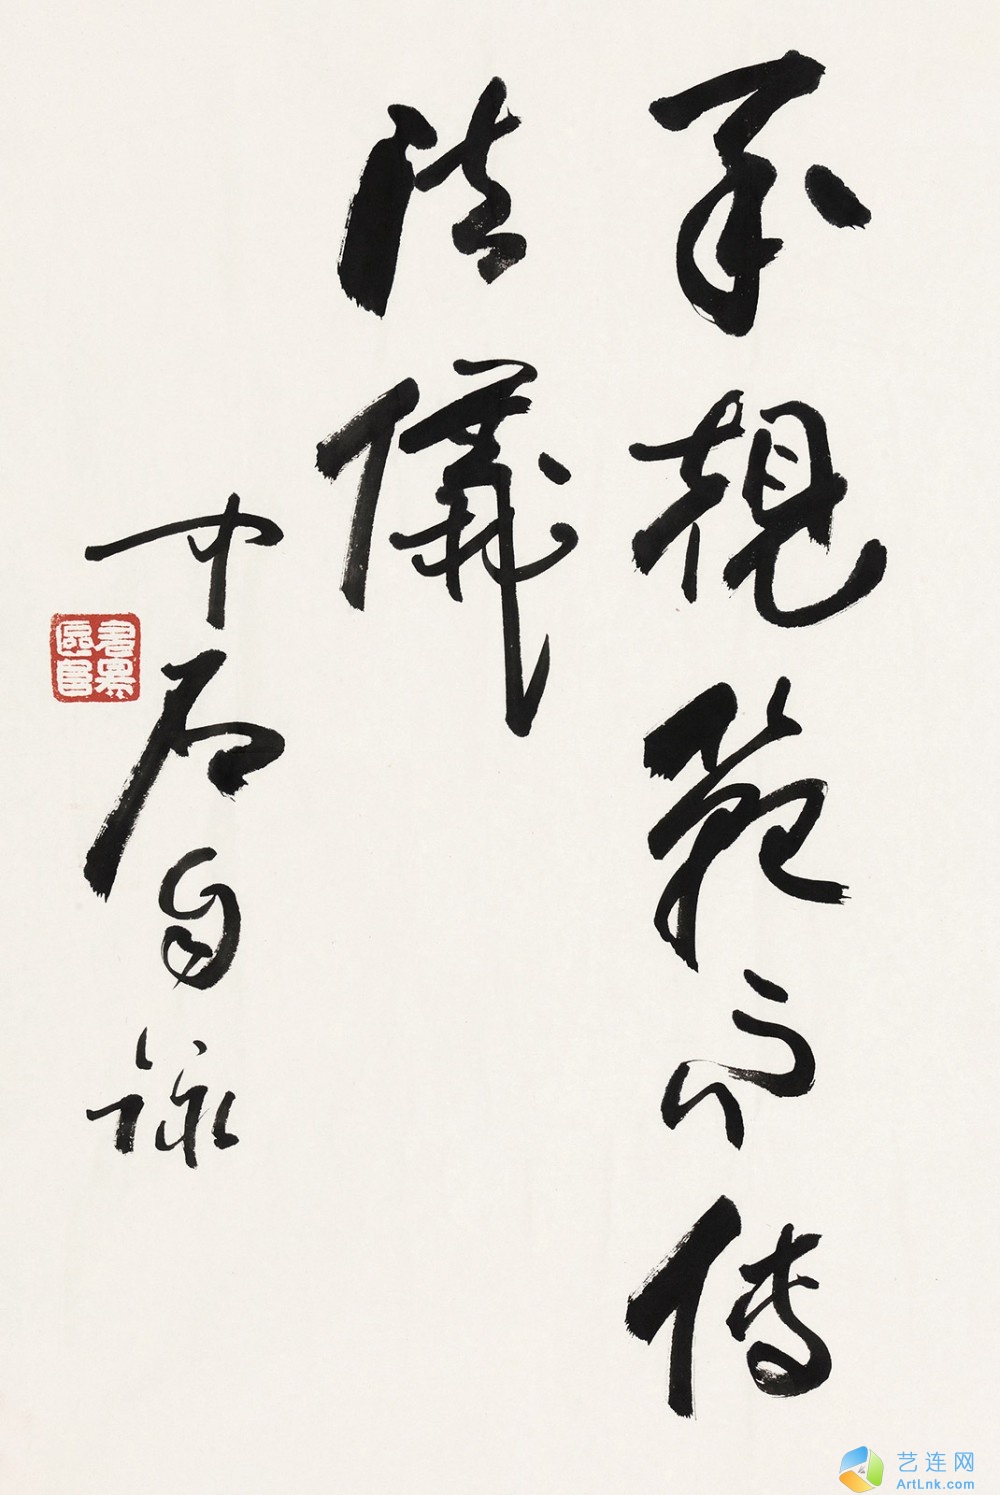 承規範而傳
法儀
中石自詠
艺连网
ArtLnk.com